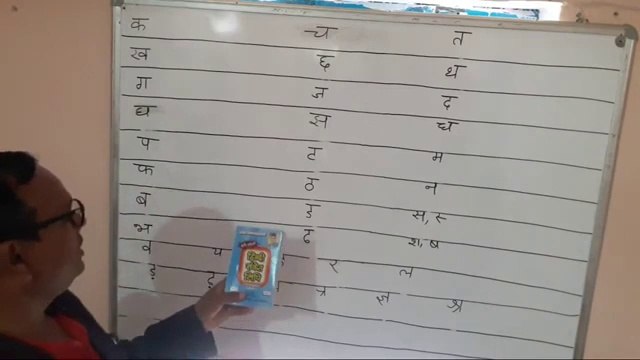 क च त
ख छ थ
ग ज द
घ झ ध
प ट म
फ ठ न
ब ड स, स्
भ ढ श, ष
व य र ल
ई ह त्र ज्ञ श्र